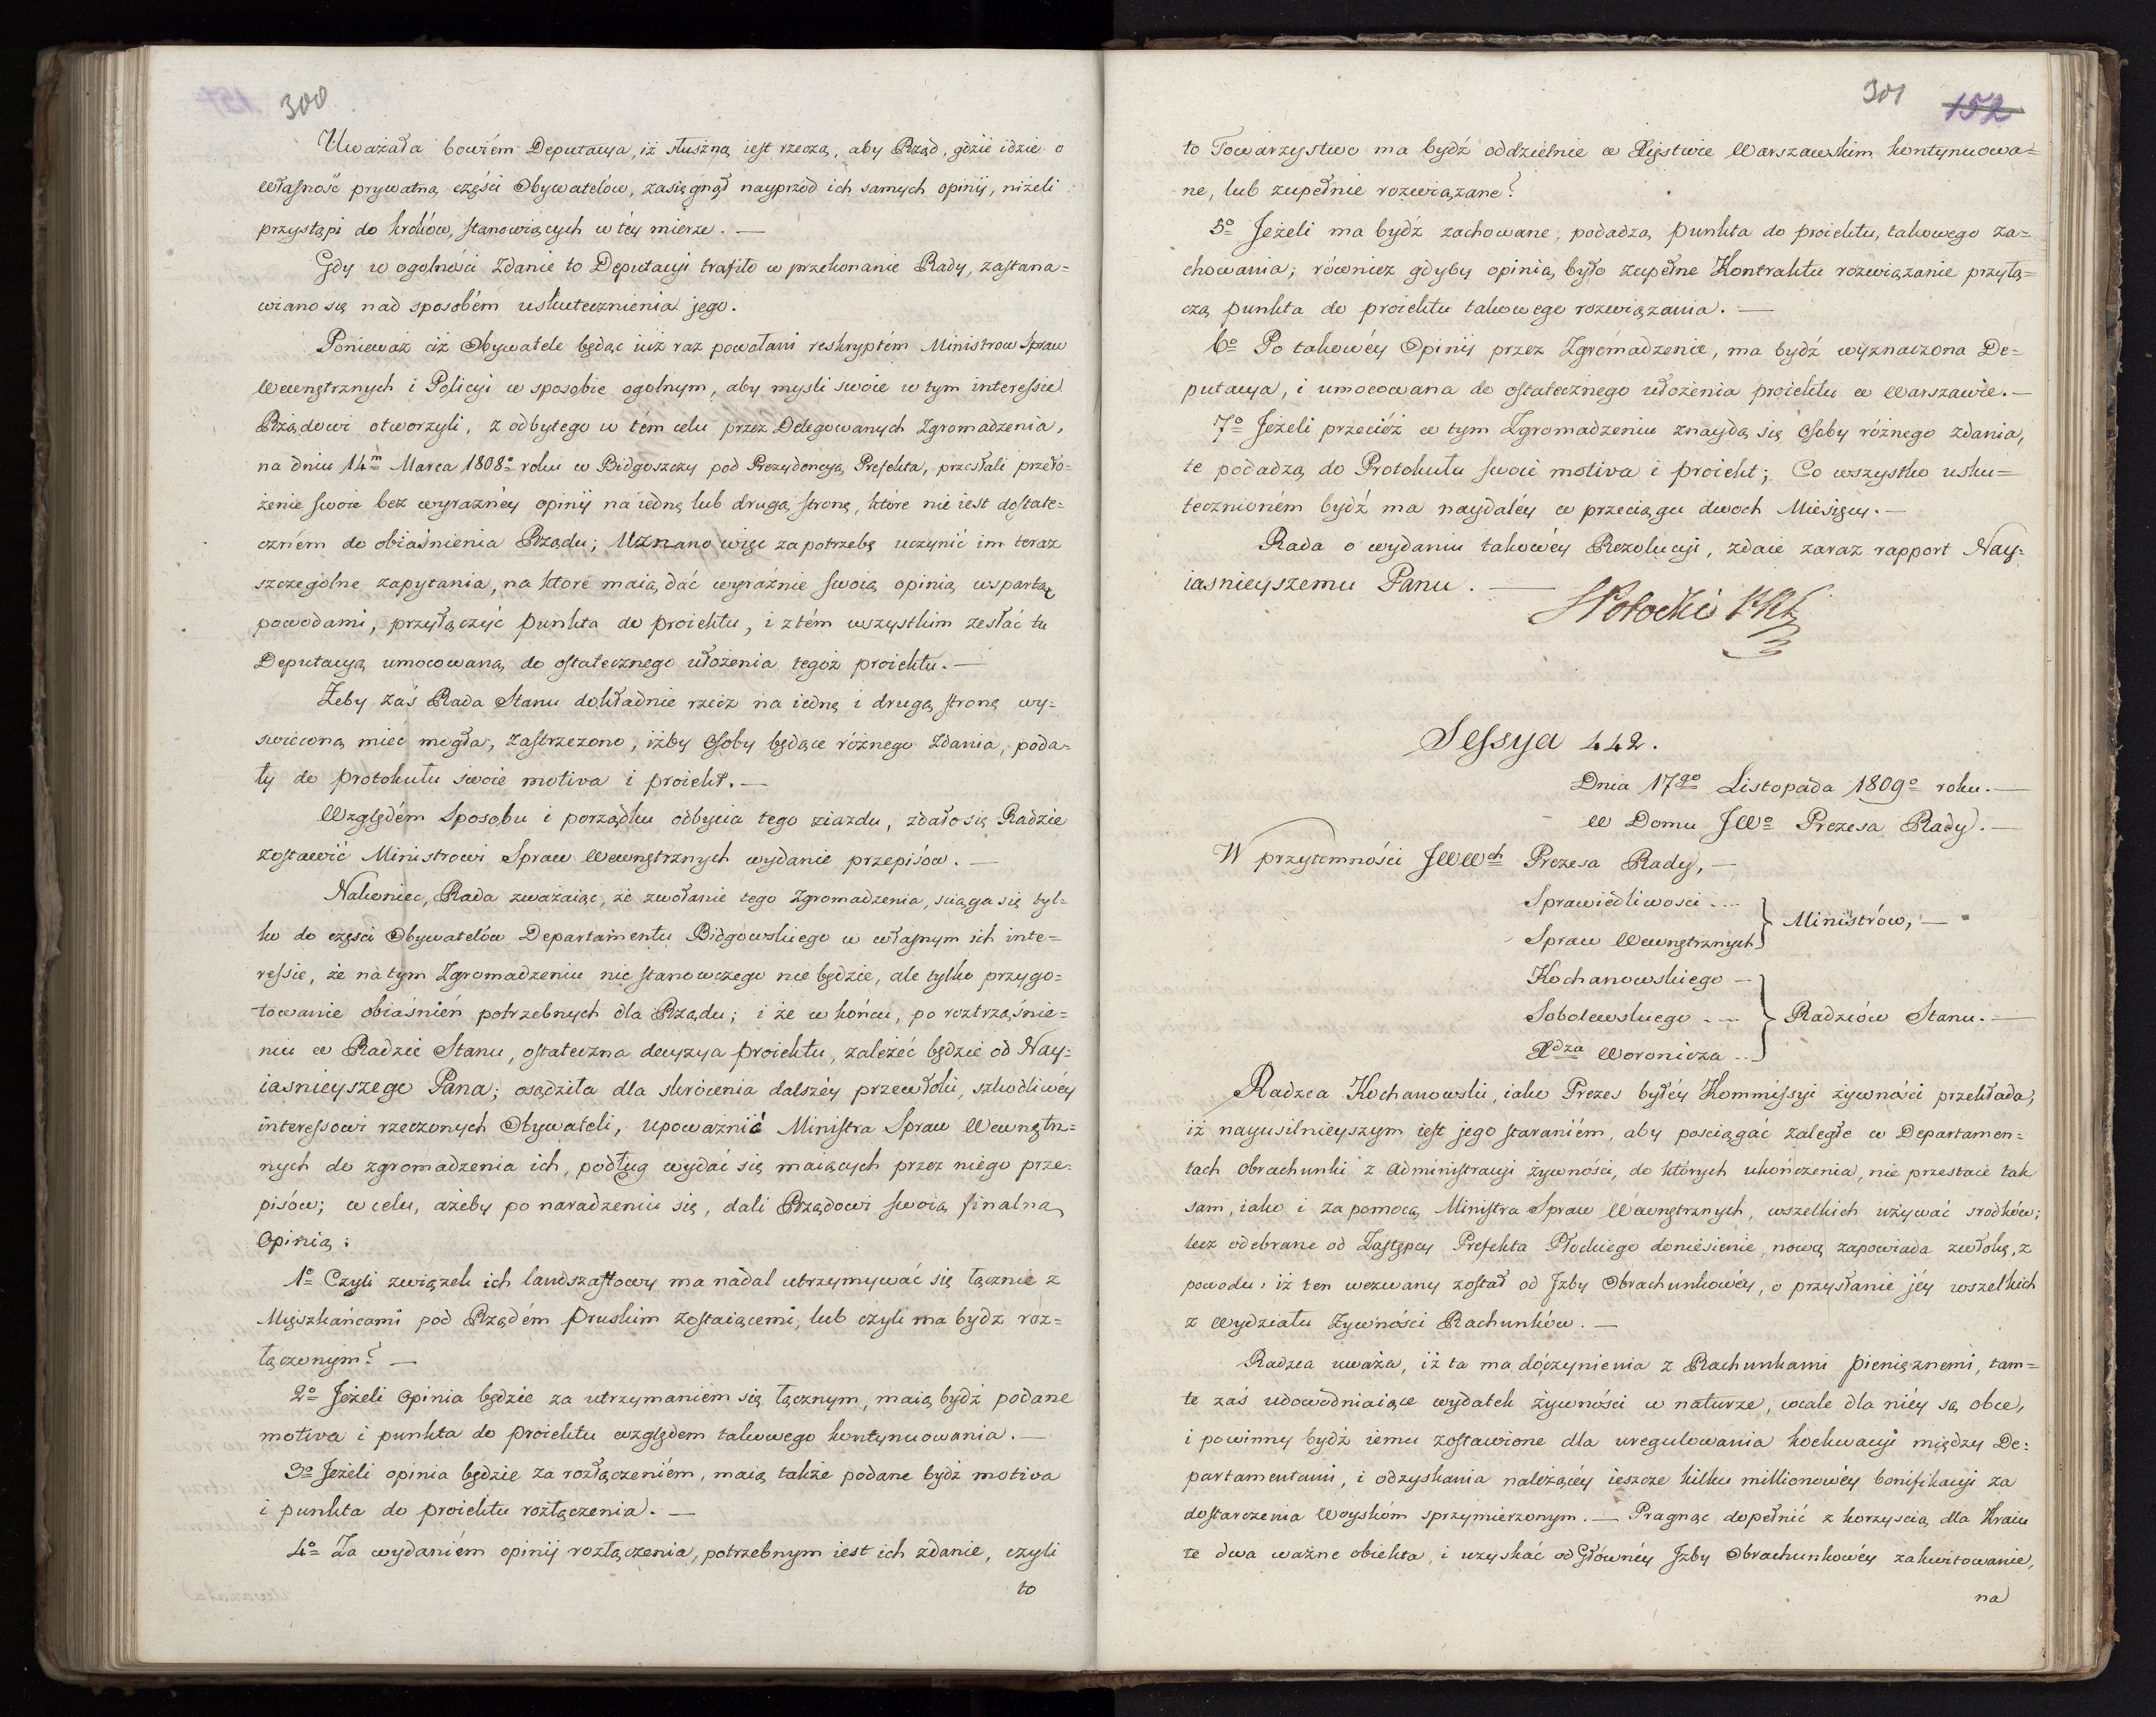 300
Uważała bowiém Deputacya, iż słuszną iest rzeczą, aby Rząd, gdzie idzie o
własność prywatną części Obywatelów, zasięgnął nayprzód ich samych opinij, niżeli
przystąpi do kroków, stanowiących w téy mierze. —
Gdy w ogolności Zdanie to Deputacyi trafiło w przekonanie Rady, zastana=
wiano się nad sposobém uskutecznienia jego.
Ponieważ ciż Obywatele będąc iuż raz powołani reskryptém Ministrow Spraw
Wewnętrznych i Policyi w sposobie ogolnym, aby mysli swoie w tym interessie
Rządowi otworzyli, z odbytego w tém celu przez Delegowanych Zgromadzenia,
na dniu 14m Marca 1808o roku w Bidgoszczy pod Prezydencyą Prefekta, przesłali przeło=
żenie swoie bez wyraźnéy opinij na iedną lub drugą stronę, które nie iest dostate=
czném do obiaśnienia Rządu; Uznano więc za potrzebę uczynić im teraz
szczególne zapytania, na które maią dać wyraźnie swoią opinią wspartą
powodami, przyłączyć punkta do proiektu, i z tém wszystkim zesłać tu
Deputacyą umocowaną do ostatecznego ułożenia tegoż proiektu. —
Żeby zaś Rada Stanu dokładnie rzecz na iedną i drugą stronę wy=
swieconą mieć mogła, zastrzeżono, iżby Osoby będące różnego Zdania, poda=
ły do protokułu swoie motiva i proiekt. —
Względém Sposobu i porządku odbycia tego ziazdu, zdało się Radzie
zostawić Ministrowi Spraw Wewnętrznych wydanie przepisów. —
Nakoniec, Rada zważaiąc, że zwołanie tego Zgromadzenia, sciąga się tyl=
ko do części Obywatelów Departamentu Bidgoskiego w własnym ich inte=
ressie, że na tym Zgromadzeniu nic stanowczego nie będzie, ale tylko przygo=
towanie obiaśnień potrzebnych dla Rządu; i że w końcu, po roztrząśnie=
niu w Radzie Stanu, ostateczna decyzya proiektu, zależeć będzie od Nay=
iasnieyszego Pana; osądziła dla skrócenia dalszéy przewłoki, szkodliwéy
interessowi rzeczonych Obywateli, upoważnić Ministra Spraw Wewnętrz=
nych do zgromadzenia ich, podług wydać się maiących przez niego prze=
pisów; w celu, ażeby po naradzeniu się, dali Rządowi swoią finalną
Opinią:
1o Czyli związek ich landszaftowy ma nadal utrzymywać się łącznie z
Mięszkańcami pod Rządém pruskim zostaiącemi, lub czyli ma bydź roz=
łączonym? —
2o Jeżeli Opinia będzie za utrzymaniem się łącznym, maią bydź podane
motiva i punkta do proiektu względem takowego kontynuowania. —
3o Jeżeli opinia będzie za rozłączeniém, maią także podane bydź motiva
i punkta do proiektu rozłączenia. —
4o Za wydaniém opinij rozłączenia, potrzebnym iest ich zdanie, czyli
to
301 152
to Towarzystwo ma bydź oddzielnie w Xięstwie Warszawskim kontynuowa=
ne, lub zupełnie rozwiązane?
5o Jeżeli ma bydź zachowane, podadzą punkta do proiektu, takowego za=
chowania; równiez gdyby opinią było zupełne Kontraktu rozwiązanie przyłą=
czą punkta do proiektu takowego rozwiązania. —
6o Po takowéy Opinij przez Zgromadzenie, ma bydź wyznaczona De=
putacya, i umocowana do ostatecznego ułożenia proiektu w Warszawie. —
7o Jeżeli przecióż w tym Zgromadzeniu znaydą się Osoby różnego zdania,
te podadzą do Protokułu swoie motiva i proiekt; Co wszystko usku=
tecznioném bydź ma naydaléy w przeciągu dwoch Miesięcy. —
Rada o wydaniu takowéy Rezolucyi, zdaie zaraz rapport Nay=
iasnieyszemu Panu. —
SPotocki
Sessya 442.
Dnia 17go Listopada 1809o roku. —
W Domu JWo Prezesa Rady. —
W przytomności JWWch Prezesa Rady, —
Sprawiedliwosci ....
Spraw Wewnętrznych } Ministrów, —
Kochanowskiego —
Sobolewskiego .... } Radzców Stanu. —
Xdza Woronicza ...
Radzca Kochanowski, iako Prezes byłéy Kommissyi żywności przekłada,
iż nayusilnieyszym iest jego staraniém, aby posciągać zaległe w Departamen=
tach obrachunki z Administracyi żywności, do których ukończenia, nie przestaie tak
sam, iako i za pomocą Ministra Spraw Wewnętrznych, wszelkich używać srodków;
lecz odebrane od Zastępcy Prefekta Płockiego doniesienie, nową zapowiada zwłokę, z
powodu, iż ten wezwany został od Jzby Obrachunkowéy, o przysłanie jéy wszelkich
z Wydziału Żywności Rachunków. —
Radzca uważa, iż ta ma do czynienia z Rachunkami pieniężnemi, tam=
te zaś udowodniaiące wydatek żywności w naturze, wcale dla niéy są obce,
i powinny bydź iemu zostawione dla uregulowania koekwacyi między De=
partamentami, i odzyskania należącéy ieszcze kilku millionowéy bonifikacyi za
dostarczenia Woyskóm sprzymierzonym. — Pragnąc dopełnić z korzyscią dla Kraiu
te dwa ważne obiekta, i uzyskać od Głównéy Jzby Obrachunkowéy zakwitowanie,
na